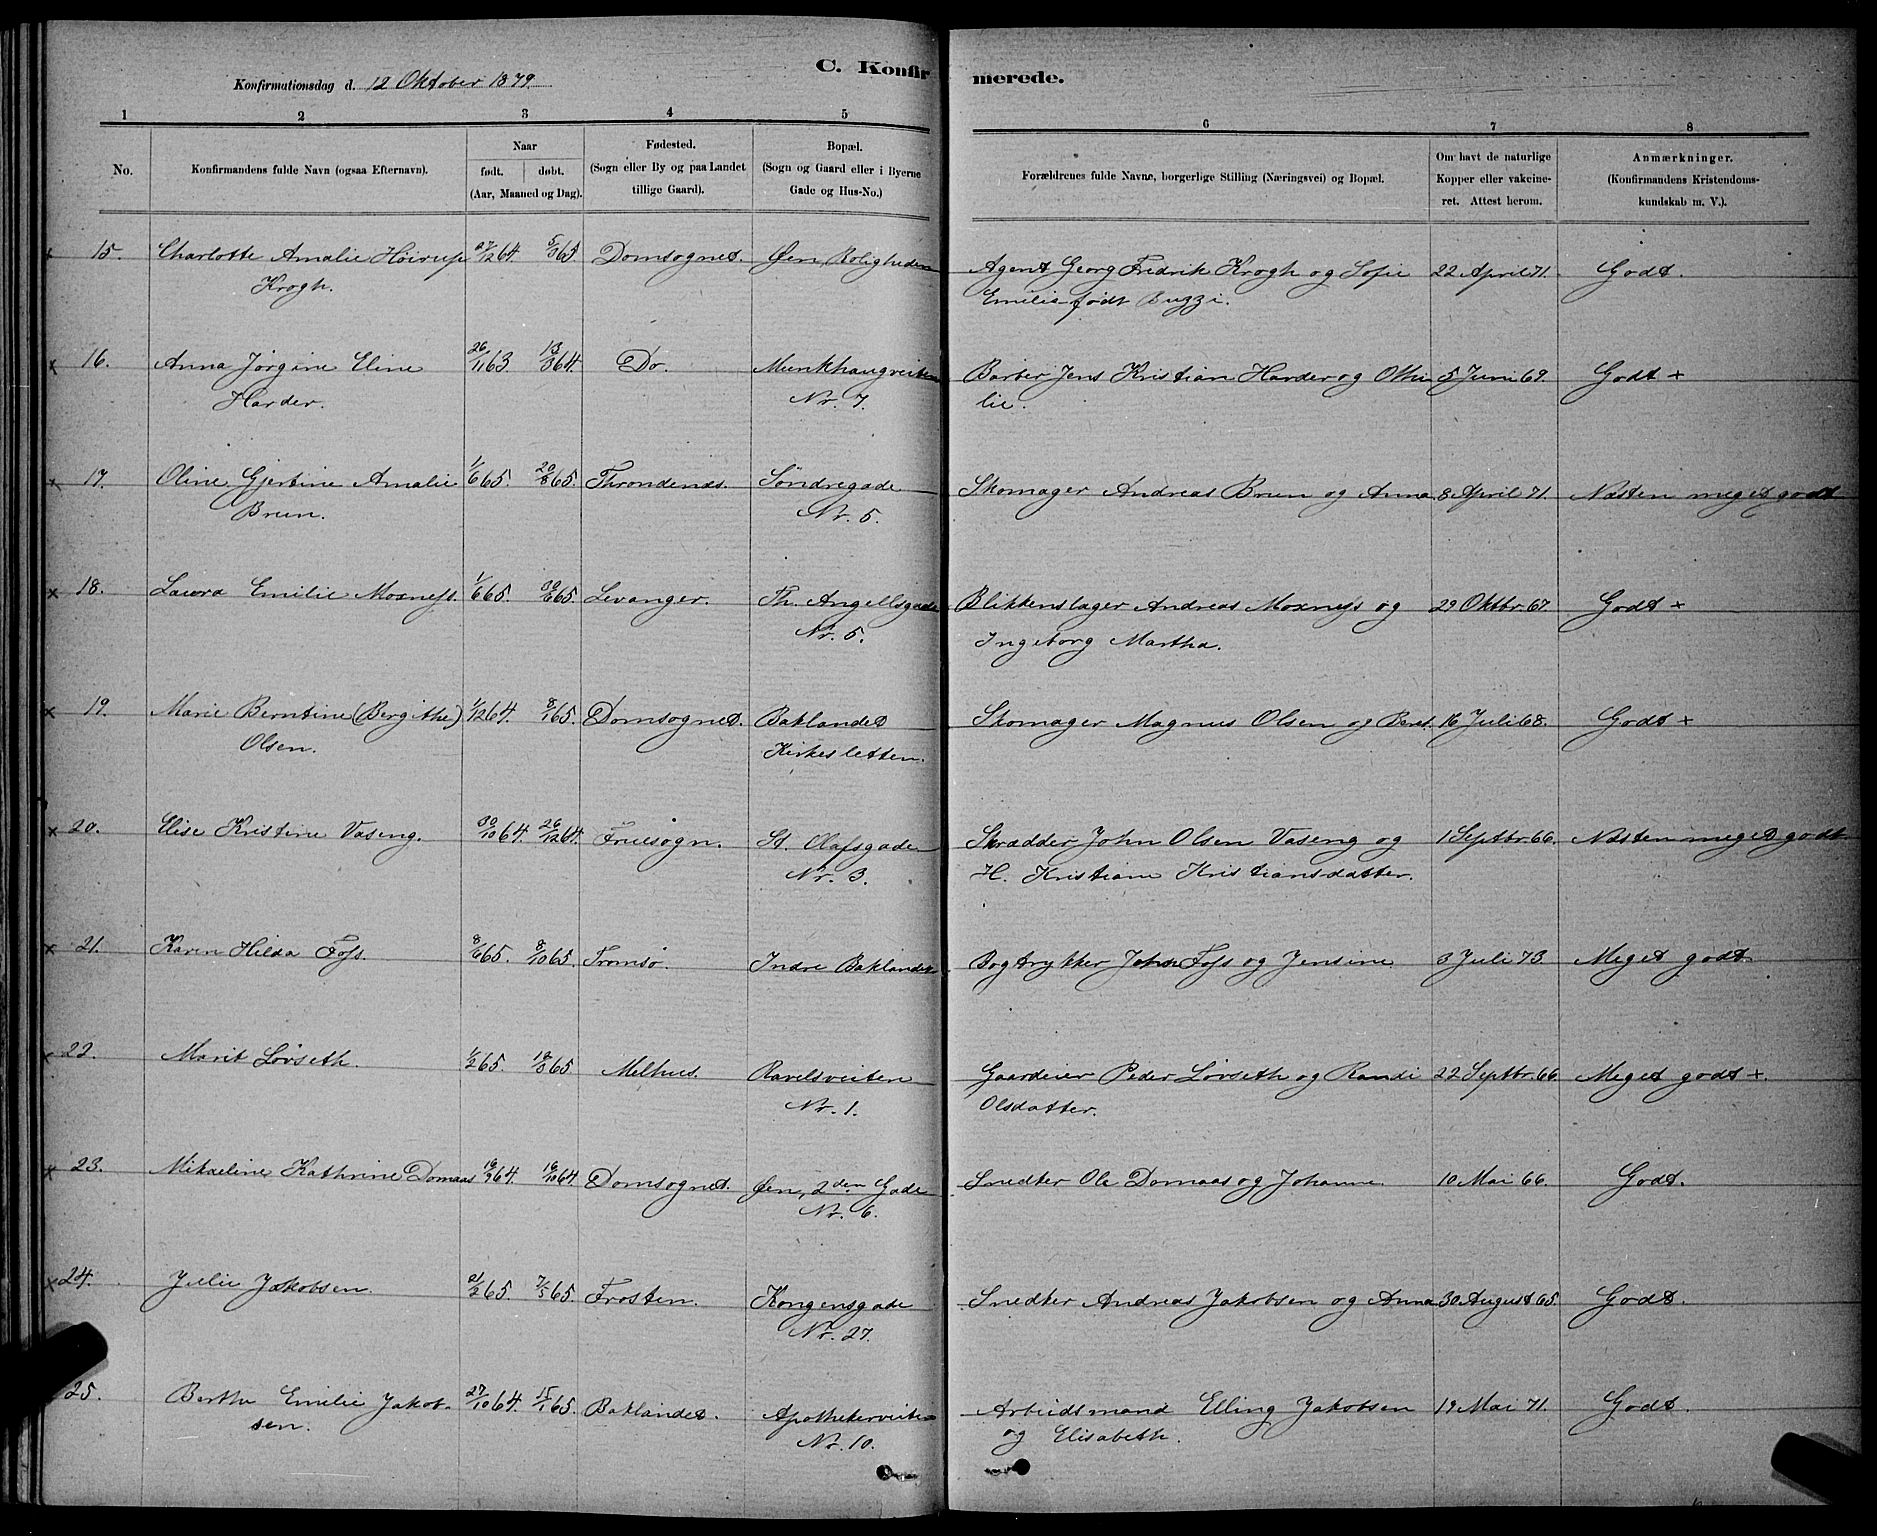 C. Konfirmerede.
Konfirmationsdag d. 12 Oktober 1879.
1 2 3 4 5 6 7 8
No.
Konfirmandens fulde Navn (ogsaa Efternavn).
Naar
født. døbt.
(Aar, Maaned og Dag).
Fødested.
(Sogn eller By og paa Landet
tillige Gaard).
Bopæl.
(Sogn og Gaard eller i Byerne
Gade og Hus-No.)
Forældrenes fulde Navne, borgerlige Stilling (Næringsvei) og Bopæl.
Om havt de naturlige
Kopper eller vakcine-
ret. Attest herom.
Anmærkninger.
(Konfirmandens Kristendoms-
kundskab m. V.).
15. Charlotte Amalie Höirup 27/12 64. 5/3 65. Domsognet. Øen, Roligheden Agent Georg Fredrik Krogh og Sofie 22 April 71. Godt.
Krogh. Emilie født Buzzi.
16. Anna Jørgine Eline 26/11 63 13/3 64. Do. Munkhaugveiten Barber Jens Kristian Harder og Othi 5 Juni 69. Godt +
Harder. Nr. 7. lie.
17. Oline Gjertine Amalie 1/6 65. 20/8 65. Throndenæs. Söndregade Skomager Andreas Brun og Anna 8 April 71. Næsten meget godt
Brun. Nr. 5.
18. Laura Emilie Moxness. 1/6 65. 30/6 65. Levanger. Th. Angellsgade Blikkenslager Andreas Moxness og 29 Oktbr. 67. Godt +
Nr. 5. Ingeborg Martha.
19. Marie Berntine (Bergithe) 1/12 64. 8/1 65. Domsognet. Baklandet Skomager Magnus Olsen og Beret. 16 Juli 68. Godt +
Olsen. Kirkesletten.
20. Elise Kristine Vaseng. 30/10 64. 26/12 64. Fruesogn. St. Olafsgade Skrædder John Olsen Vaseng og 1 Septbr. 66. Næsten meget godt
Nr. 3. H. Kristiane Kristiansdatter.
21. Karen Hilda Foss. 8/6 65. 8/10 65. Tromsö. Indre Baklandet Bogtrykker John Foss og Jensine 3 Juli 73. Meget godt
22. Marit Lövseth. 1/2 65. 19/3 65 Melhus. Ravelsveiten Gaardeier Peder Lövseth og Randi 22 Septbr. 66. Meget godt +.
Nr. 1. Olsdatter.
23. Mikaeline Kathrine Domaas 16/9 64. 16/10 64. Domsognet. Øen, 2den Gade Snedker Ole Domaas og Johanne 10 Mai 66. Godt.
Nr. 6.
24. Julie Jakobsen. 21/2 65. 7/5 65. Frosten. Kongensgade Snedker Andreas Jakobsen og Anna 30 August 65. Godt.
Nr. 27.
25. Berthe Emilie Jakob- 27/10 64. 15/1 65. Baklandet. Apothekerveiten Arbeidsmand Elling Jakobsen 19 Mai 71. Godt.
sen. Nr. 10. og Elisabeth.